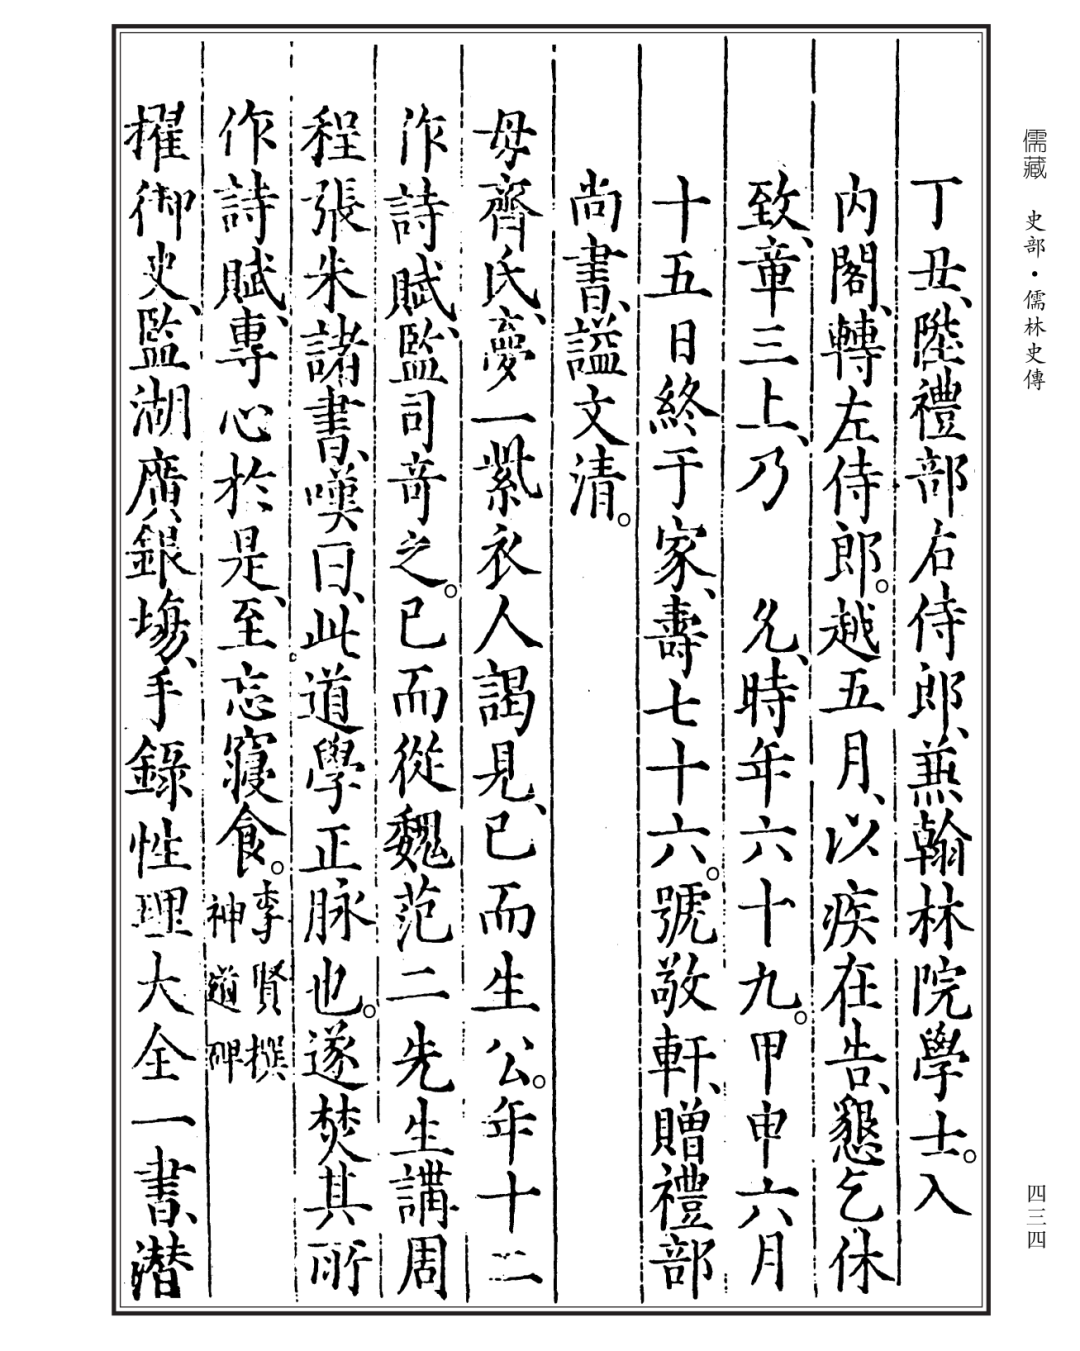 儒藏 史部·儒林史傳
丁丑、陞禮部右侍郎、兼翰林院學士。入
内閣、轉左侍郎。越五月、以疾在告、懇乞休
致、章三上、乃 允、時年六十九。甲申六月
十五日終于家、壽七十六。號敬軒、贈禮部
尚書、謚文清。
母齊氏、夢一紫衣人謁見、已而生公。年十二
作詩賦、監司竒之。已而從魏范二先生講周
程張朱諸書、嘆曰、此道學正脉也。遂焚其所
作詩賦、專心於是、至忘寢食。李賢撰神道碑
擢御史、監湖廣銀塲、手錄性理大全一書、潛
四三四